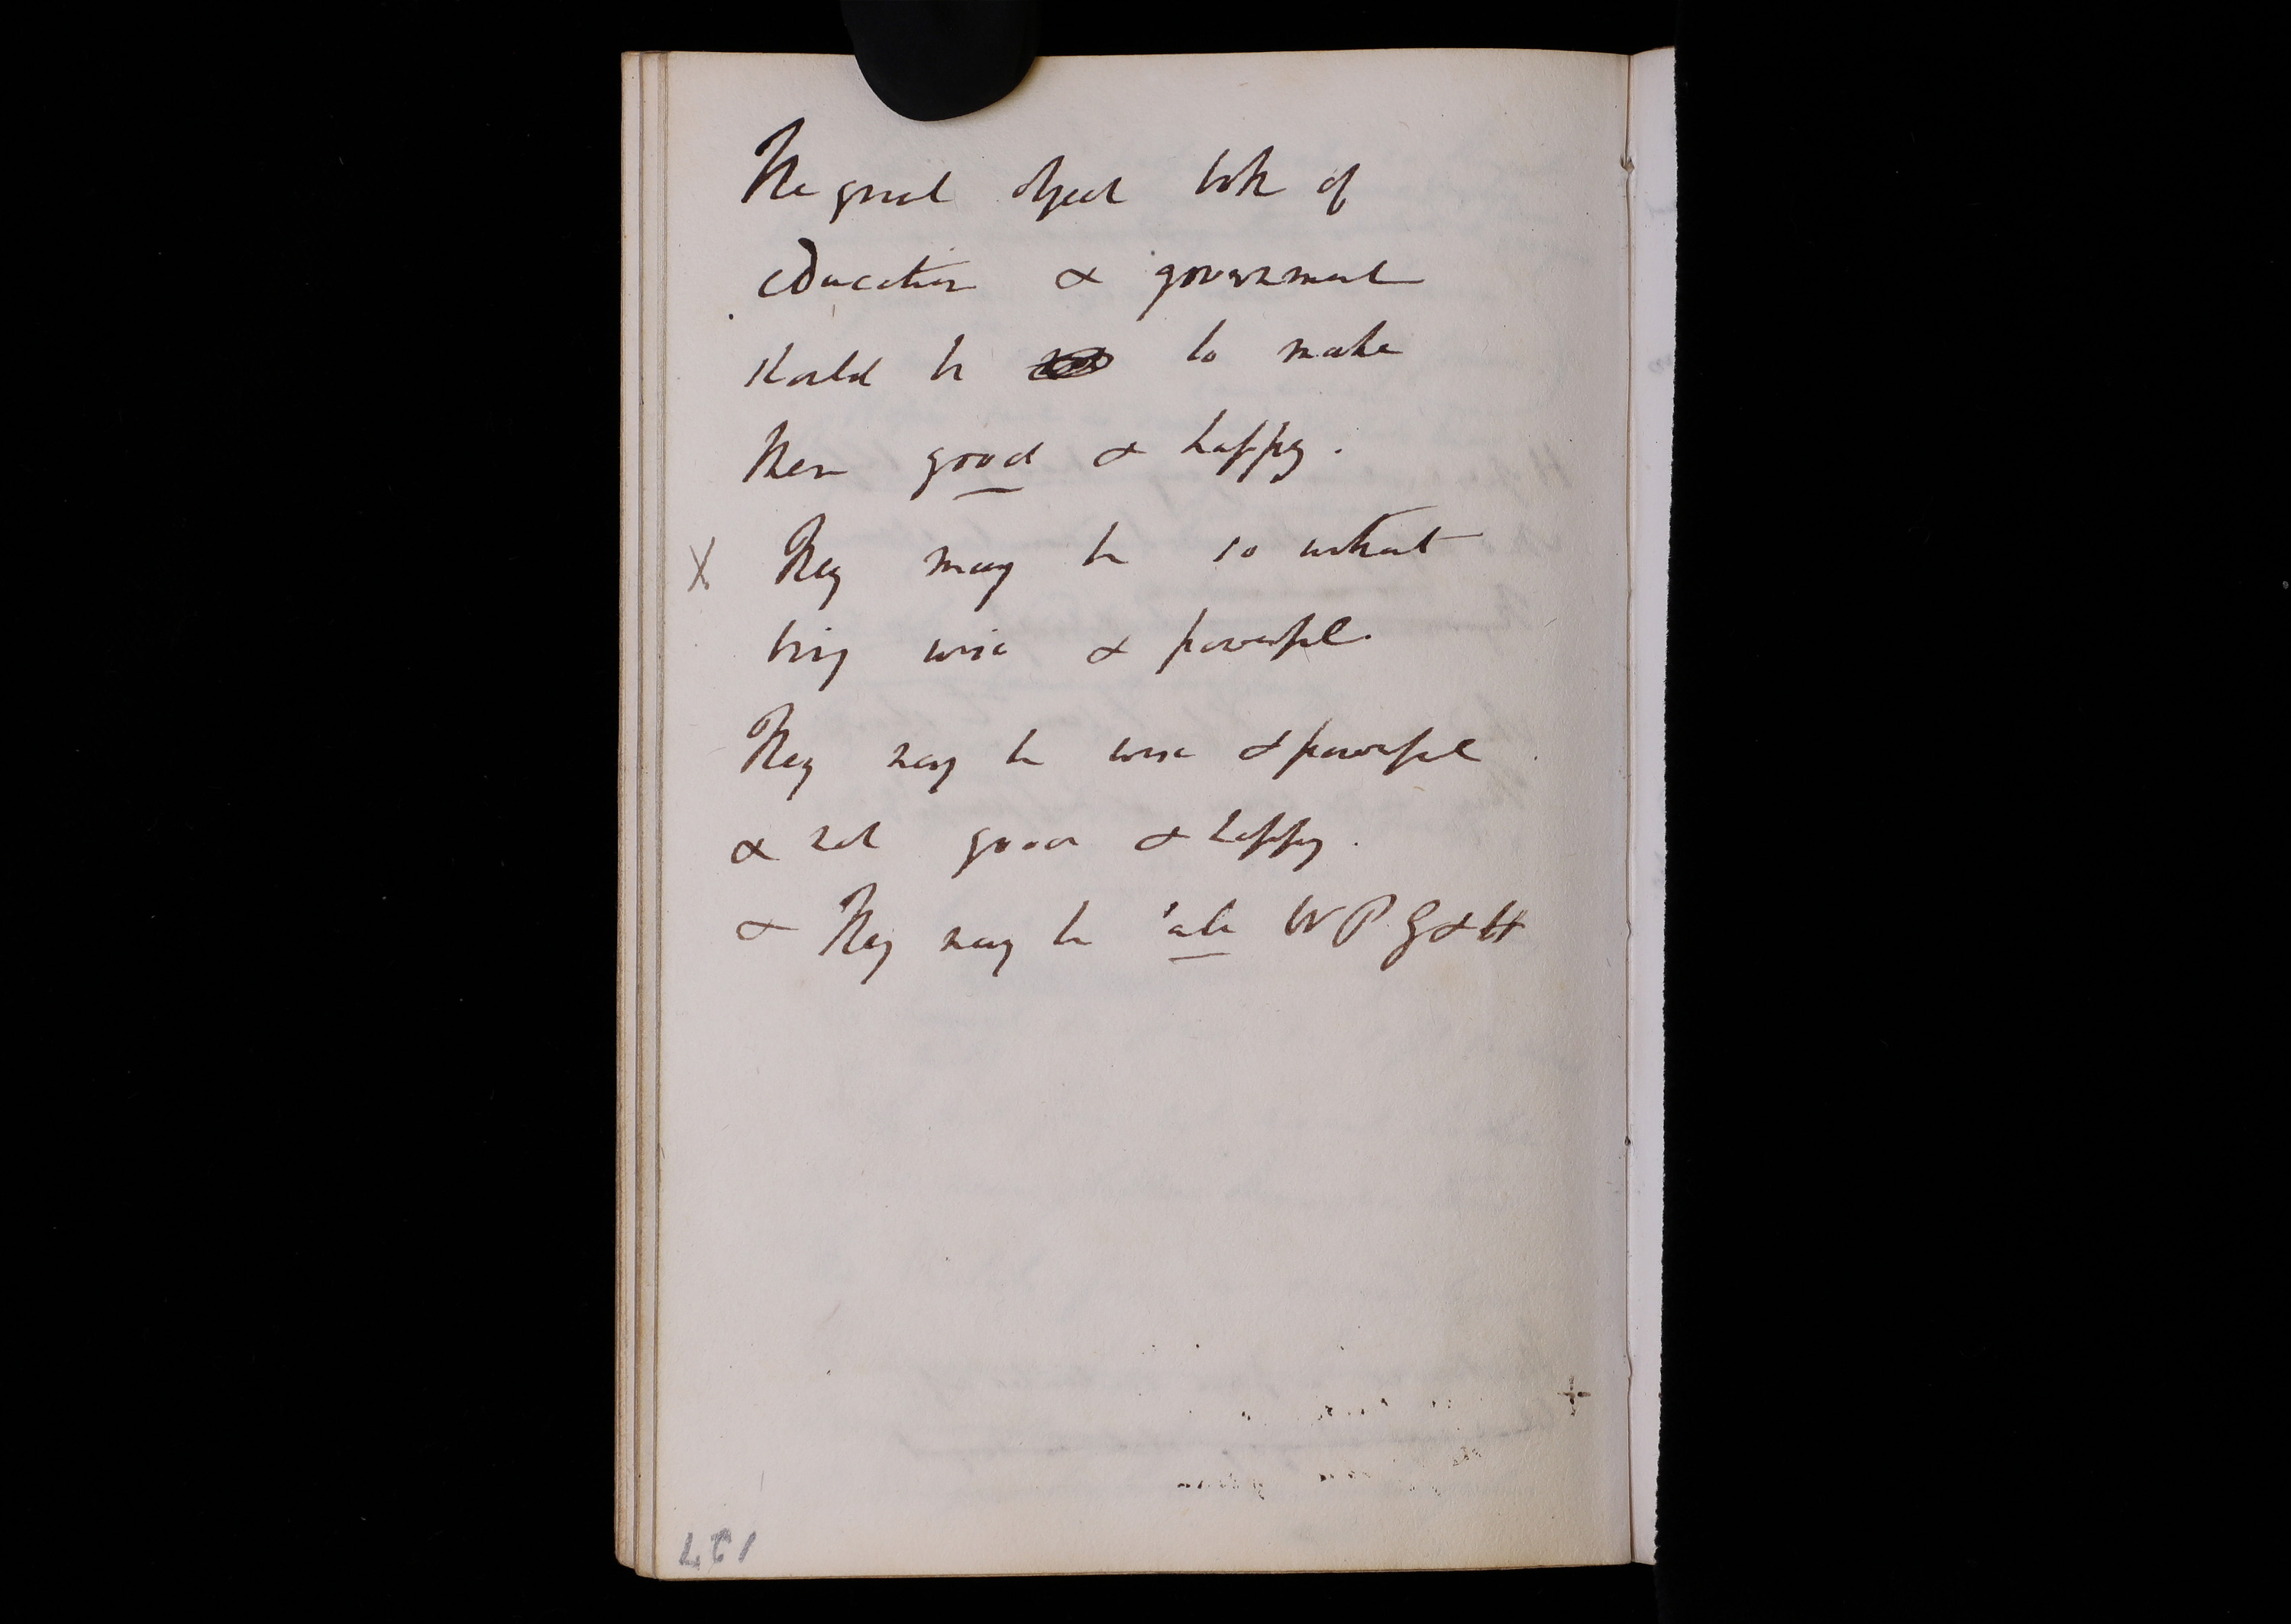 The great object both of
education & government
should be to make
men good & happy.
X They may be so without
being wise & powerful.
They may be wise & powerful
& not good & happy.
& they may be at W P G & H
127